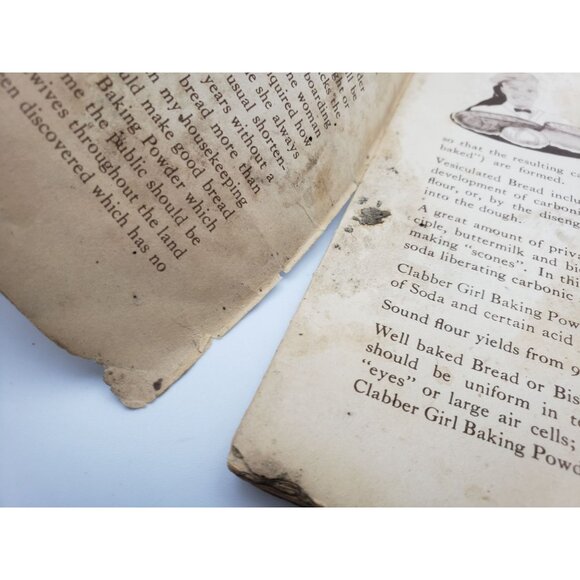 der
or
the
boarding
woman
quired how
she always
usual shorten-
years without a
bread more than
in my housekeeping
uld make good bread
Baking Powder which
me the public should be
wives throughout the land
en discovered which has no
so that the resulting ca
baked") are formed.
Vesiculated Bread inclu
development of carboni
flour, or, by the diseng
into the dough.
A great amount of priva
ciple, buttermilk and bi
making "scones". In thi
soda liberating carbonic
Clabber Girl Baking Pow
of Soda and certain acid
Sound flour yields from 9
Well baked Bread or Bis
should be uniform in te
"eyes" or large air cells;
Clabber Girl Baking Powd